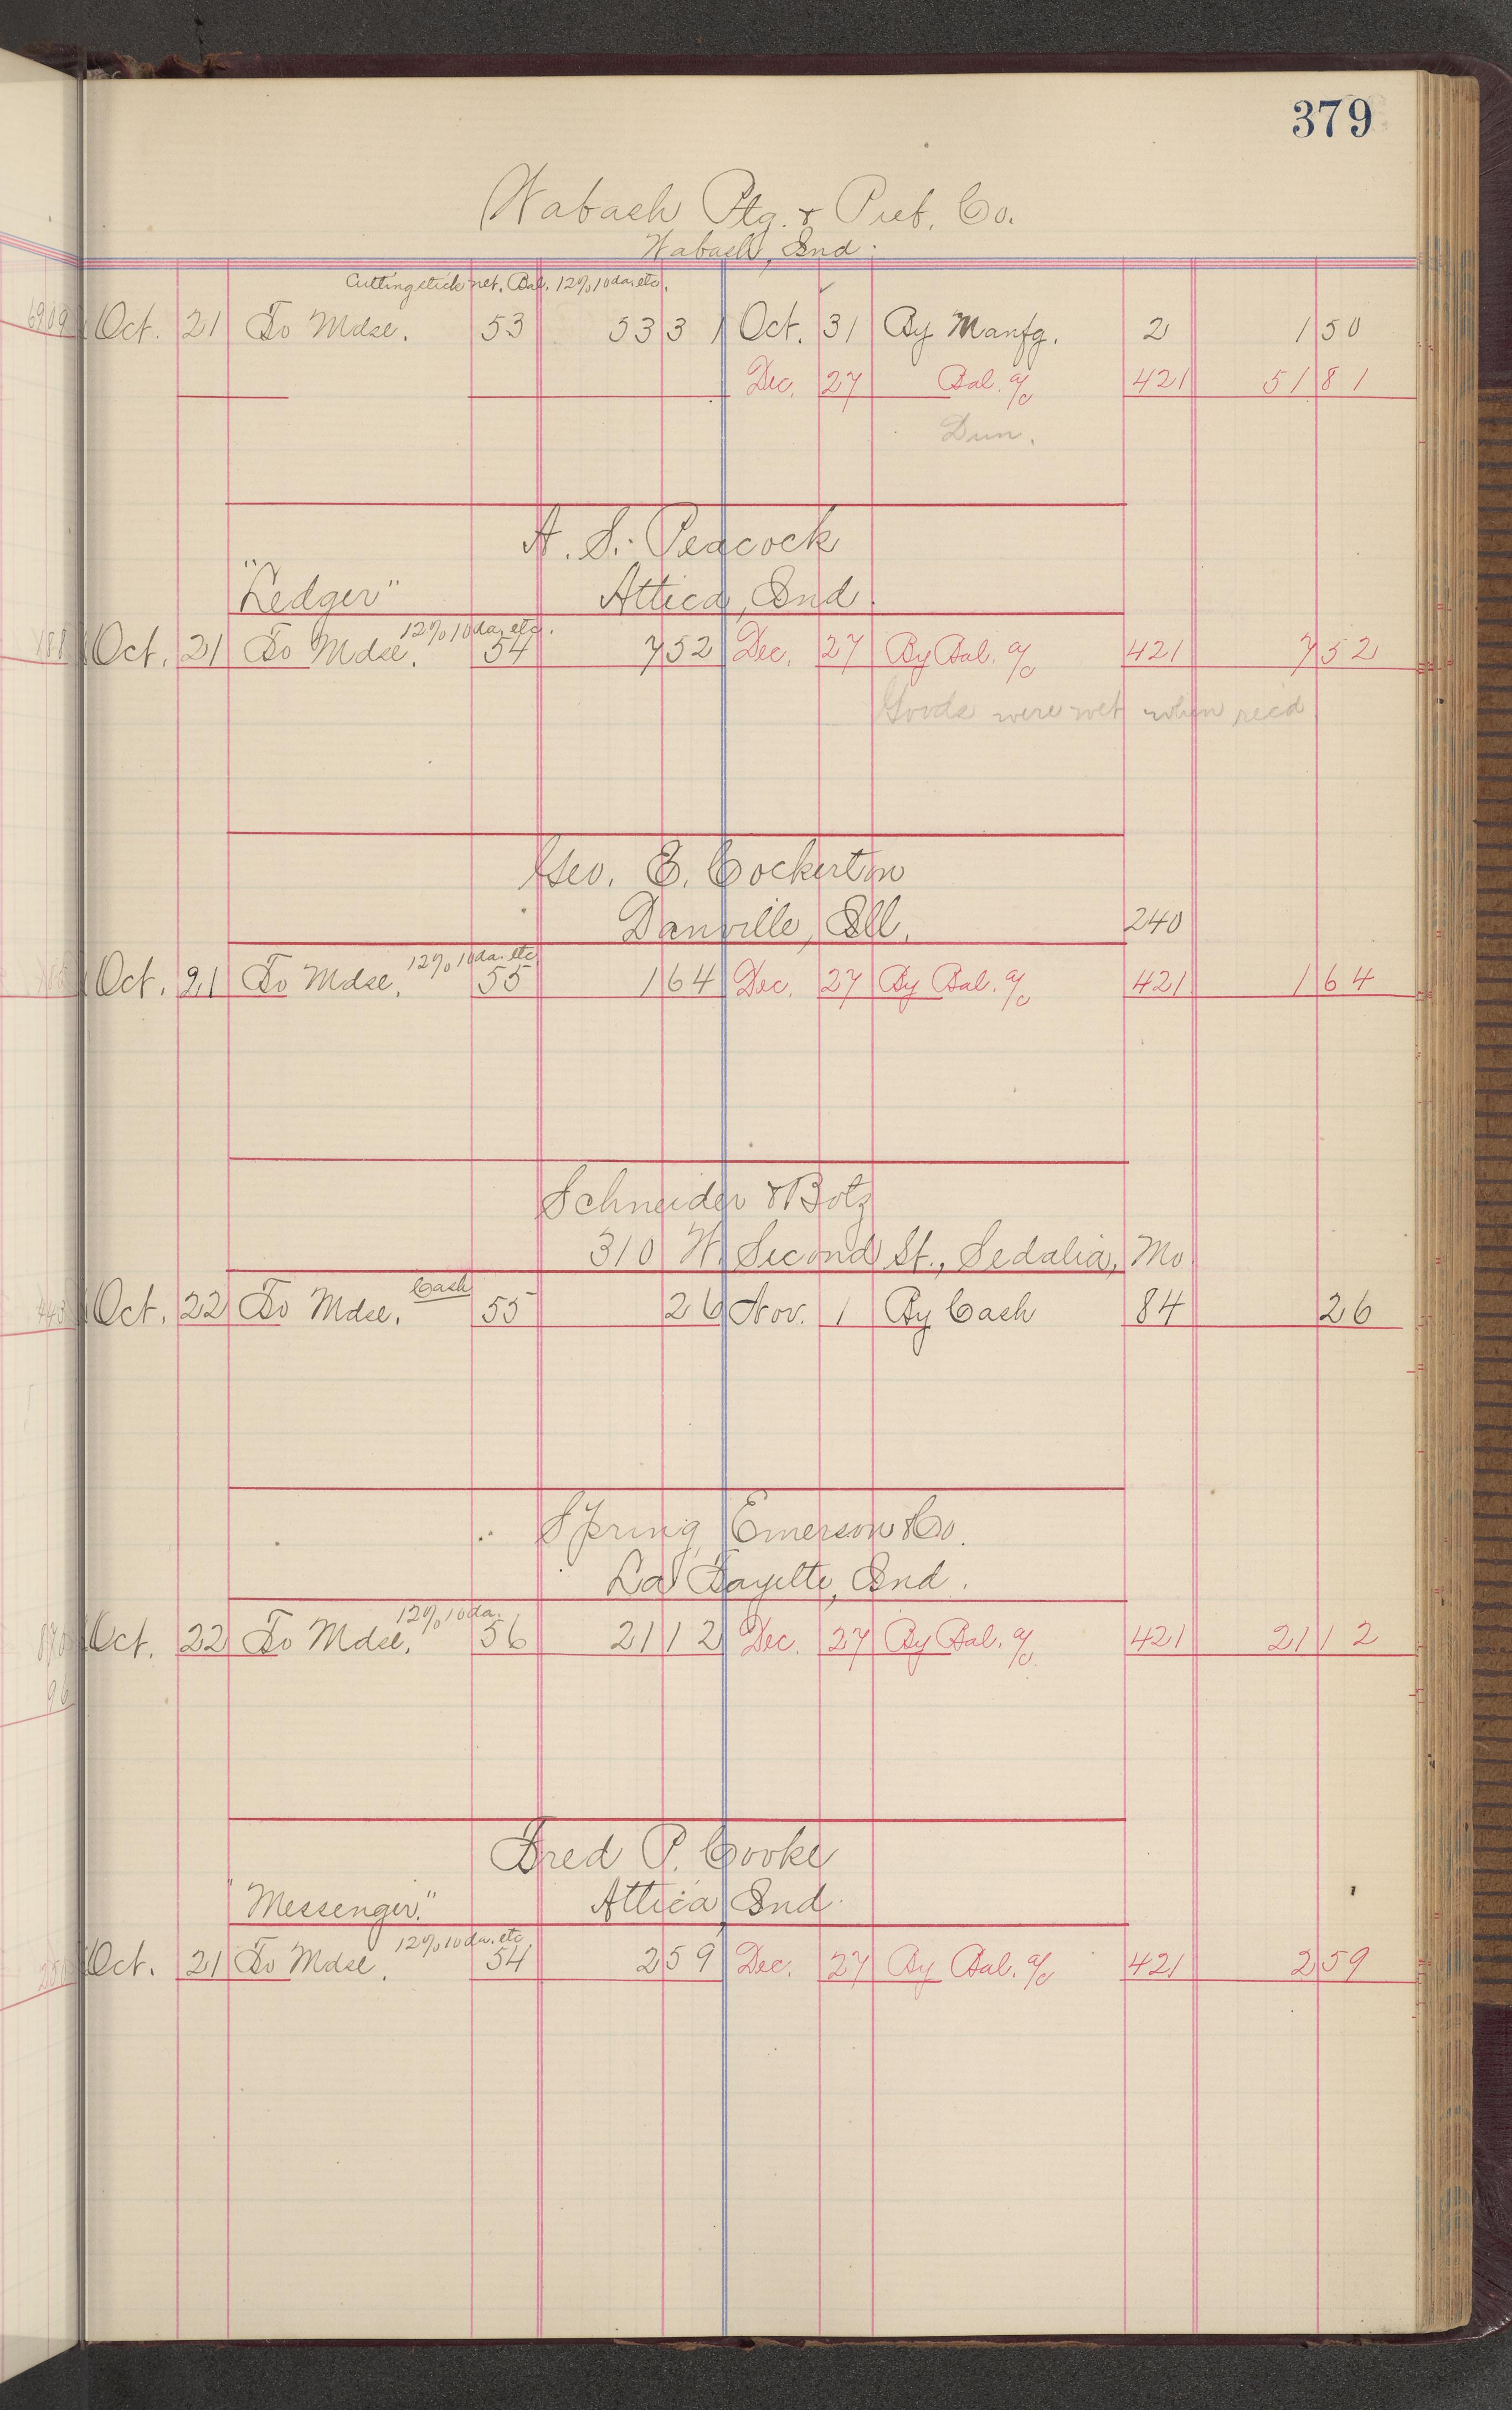 379
Wabash Ptg. & Pub. Co.
Wabash, Ind.
Cutting stick net. Bal. 12% 10 da. etc.
Oct. 21 To Mdse. 53 53 31 Oct. 31 By Manfg. 2 1 50
Dec. 27 Bal. a/c 421 51 81
Dun.
A. S. Peacock
"Ledger" Attica, Ind.
12% 10 da. etc.
Oct. 21 To Mdse. 54 7 52 Dec. 27 By Bal. a/c 421 7 52
Goods were wet when rec'd
Geo. E. Cockerton
Danville, Ill. 240
12% 10 da. etc.
Oct. 21 To Mdse. 55 1 64 Dec. 27 By Bal. a/c 421 1 64
Schneider & Botz
310 W. Second St., Sedalia, Mo
Cash
Oct. 22 To Mdse. 55 26 Nov. 1 By Cash 84 26
Spring, Emerson & Co.
La Fayette, Ind.
12% 10 da.
Oct. 22 To Mdse. 56 21 12 Dec. 27 By Bal. a/c 421 21 12
Fred P. Cooke
"Messenger." Attica, Ind.
12% 10 da. etc.
Oct. 21 To Mdse. 54 2 59 Dec. 27 By Bal. a/c 421 2 59